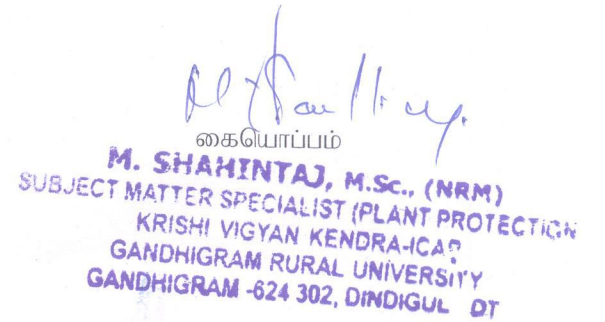 கையொப்பம்
M. SHAHINTAJ, M.Sc., (NRM)
SUBJECT MATTER SPECIALIST (PLANT PROTECTION
KRISHI VIGYAN KENDRA-ICAR
GANDHIGRAM RURAL UNIVERSITY
GANDHIGRAM -624 302, DINDIGUL DT